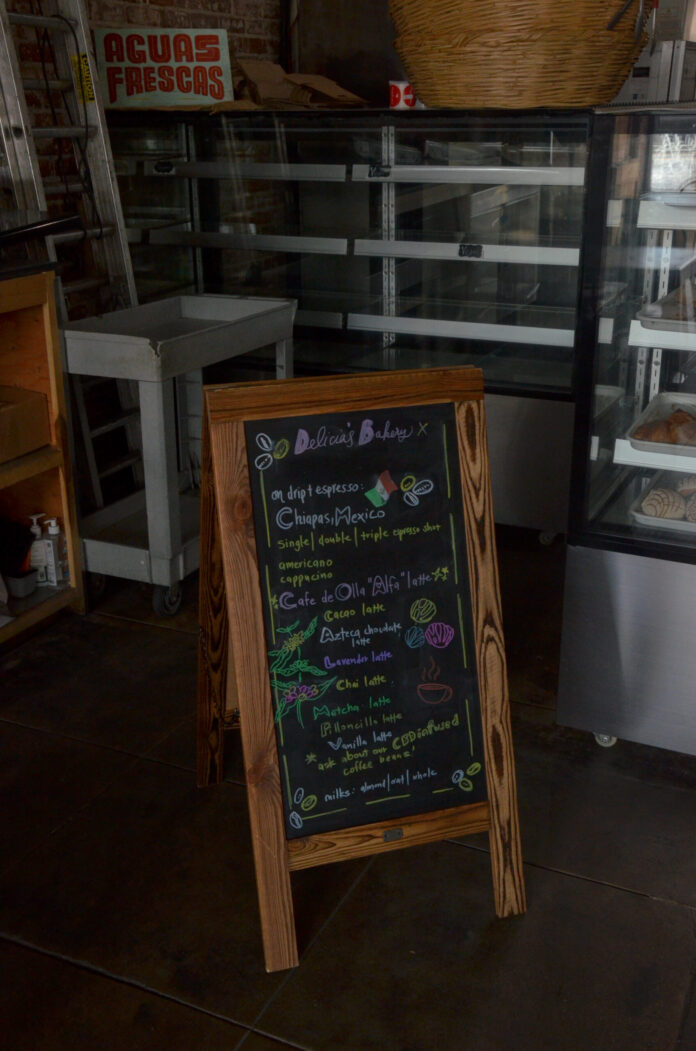 AGUAS
FRESCAS
Delicia's Bakery
on dript espresso:
Chiapas, Mexico
single/double/triple espresso shot
americano
cappucino
Cafe de Olla "Alfa" latte
Cacao latte
Azteca chocolate
latte
Lavender latte
Chai latte
Matcha latte
Piloncillo latte
Vanilla latte
*ask about our CBD infused
coffee beans!
milks: almond/oat/whole